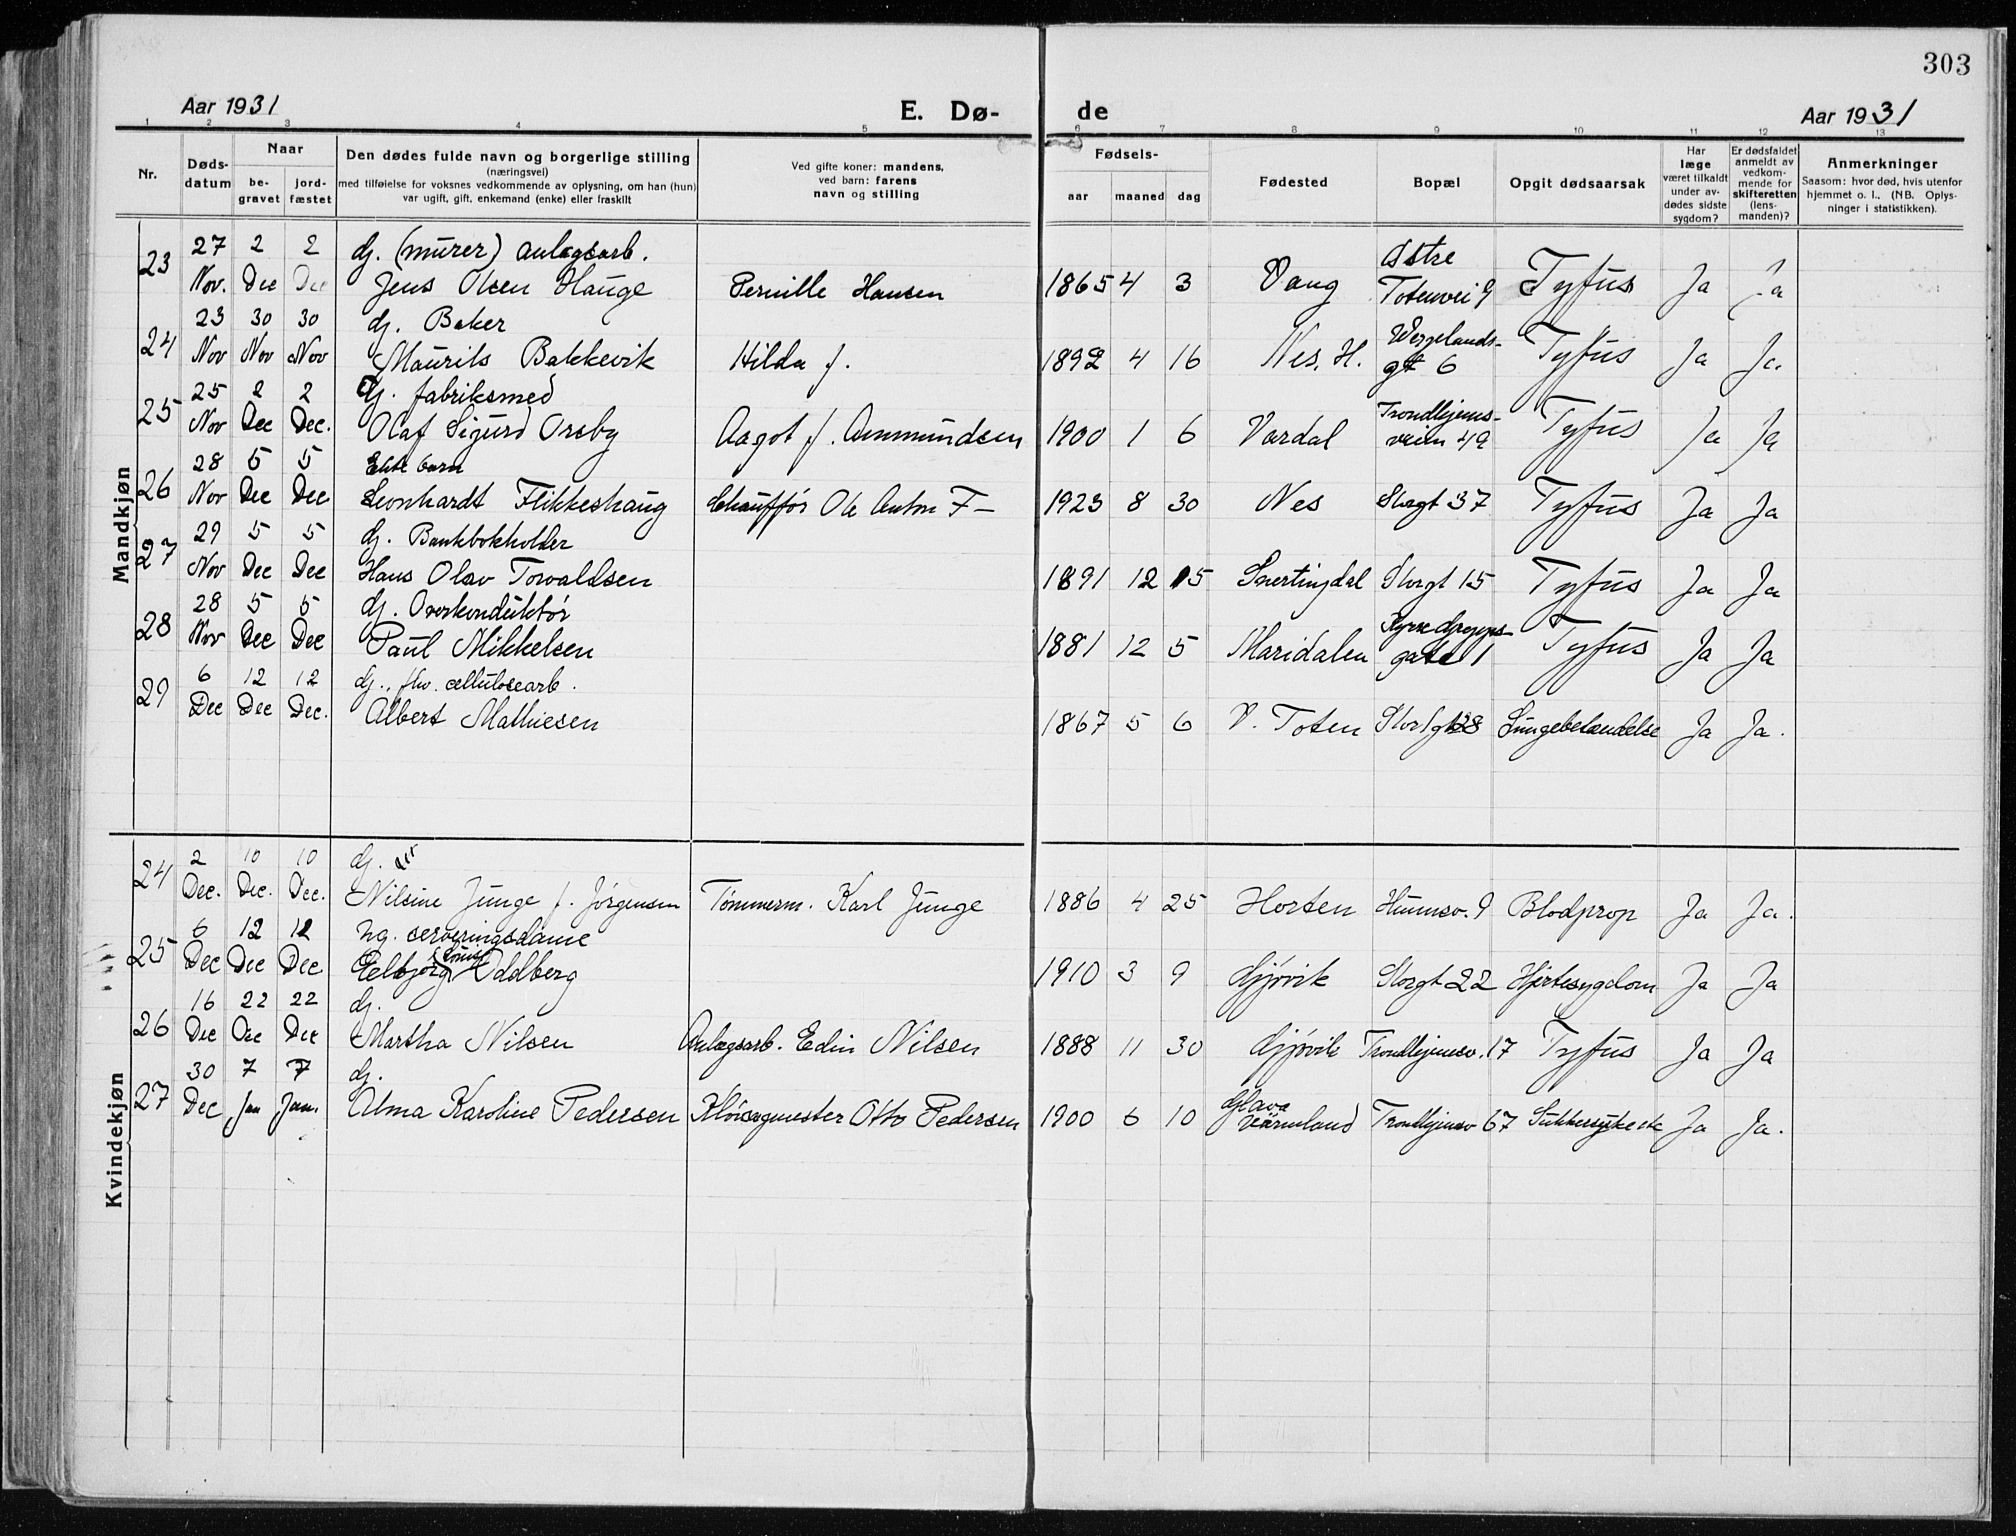 303
Aar 1931
E. Dø-
de
Aar 1931
1 2 3 4 5 6 7 8 9 10 11 12 13
Nr.
Døds-
datum
Naar
be-
gravet
jord-
fæstet
Den dødes fulde navn og borgerlige stilling
(næringsvei)
med tilføielse for voksnes vedkommende av oplysning, om han (hun)
var ugift, gift, enkemand (enke) eller fraskilt
Ved gifte koner: mandens,
ved barn: farens
navn og stilling
Fødsels-
aar
maaned
dag
Fødested
Bopæl
Opgit dødsaarsak
Har
læge
været tilkaldt
under av-
dødes sidste
sygdom?
Er dødsfaldet
anmeldt av
vedkom-
mende for
skifteretten
(lens-
manden)?
Anmerkninger
Saasom: hvor død, hvis utenfor
hjemmet o. l., (NB. Oplys-
ninger i statistikken).
Mandkjøn
23 27 2 2 Gj. (murer) anlægsarb. Østre
Nov. Dec Dec Jens Olsen Hauge Pernille Hansen 1865 4 3 Vang Totenvei 9 Tyfus Ja Ja
24 23 30 30 Gj. Baker Wergelands-
Nov Nov Nov Maurits Bakkevik Hilda f. 1892 4 16 Nes. H. gt 6 Tyfus Ja Ja.
25 25 2 2 Gj. fabriksmed Trondhjems-
Nov Dec Dec. Olaf Sigurd Orsby Aagot f. Ammundsen 1900 1 6 Vardal veien 49 Tyfus Ja Ja
26 28 5 5 Ekte barn
Nov Dec Dec Leonhardt Flikkeshaug Chauffør Ole Anton F— 1923 8 30 Nes Storgt 37 Tyfus Ja Ja
27 29 5 5 Gj. Bankbokholder
Nov Dec Dec Hans Olav Torvaldsen 1891 12 15 Snertingdal Storgt 15 Tyfus Ja Ja
28 28 5 5 Gj. Overkonduktør Kyrre Grepps-
Nov Dec Dec Paul Mikkelsen 1881 12 5 Maridalen gate 1 Tyfus Ja Ja
29 6 12 12 Gj., fhv. cellulosearb.
Dec Dec Dec. Albert Mathiesen 1867 5 6 V. Toten Lungebetændelse Ja Ja.
Kvindekjøn
24 2 10 10 Gj.
Dec. Dec. Dec. Nilsine Junge f. Jørgensen Tømmerm. Karl Junge 1886 4 25 Horten Hunnsv. 9 Blodprop Ja Ja.
25 6 12 12 Ug. serveringsdame
Dec Dec Dec Eelbjørg Oddberg 1910 3 9 Gjøvik Storgt 22 Hjertesygdom Ja Ja
26 16 22 22 Gj.
Dec Dec Dec Martha Nilsen Anlægsarb. Edin Nilsen 1888 11 30 Gjøvik Trondhjemsv. 17 Tyfus Ja Ja
27 30 7 7 Gj. Glava
Dec Jan Jan. Alma Karoline Pedersen Otto Pedersen 1900 6 10 Värmland Trondhjemsv 67 Sukkersyke etc Ja Ja.